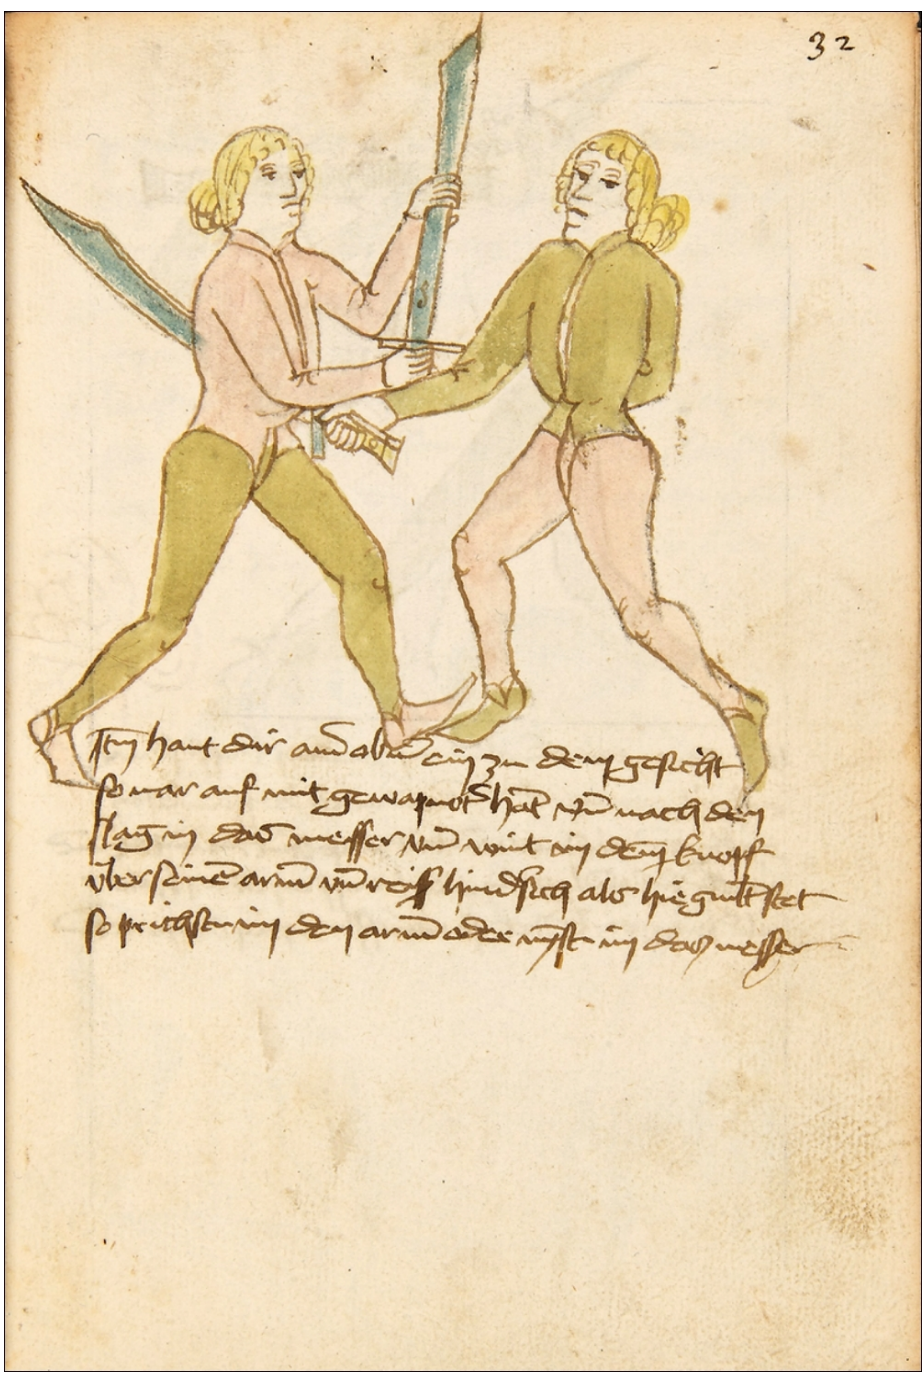 32
Itm haut dir ainer oben ein zu dem gesicht
so var auf mit gewapnoter hāt vn̄ nach dem
slag in das messer vn̄ wint im dem knopf
vber seinē arm̄ vn̄ reiss hindersich als hie gmalt stet
so prichstu im den arm̄ oder nymst im das messer